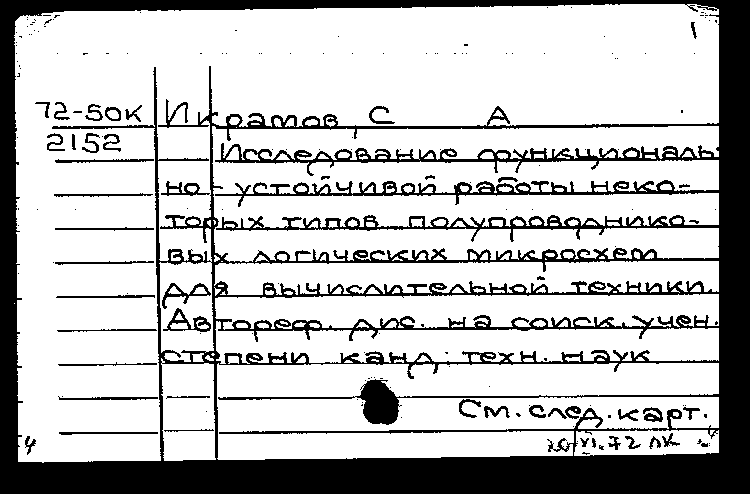 72-50К Икрамов, С А
2152
Исследование функциональ-
но-устойчивой работы неко-
торых типов полупроводнико-
вых логических микросхем
для вычислительной техники.
Автореф. дис. на соиск. учен.
степени канд. техн. наук
См. след. карт.
VI.72 ЛК